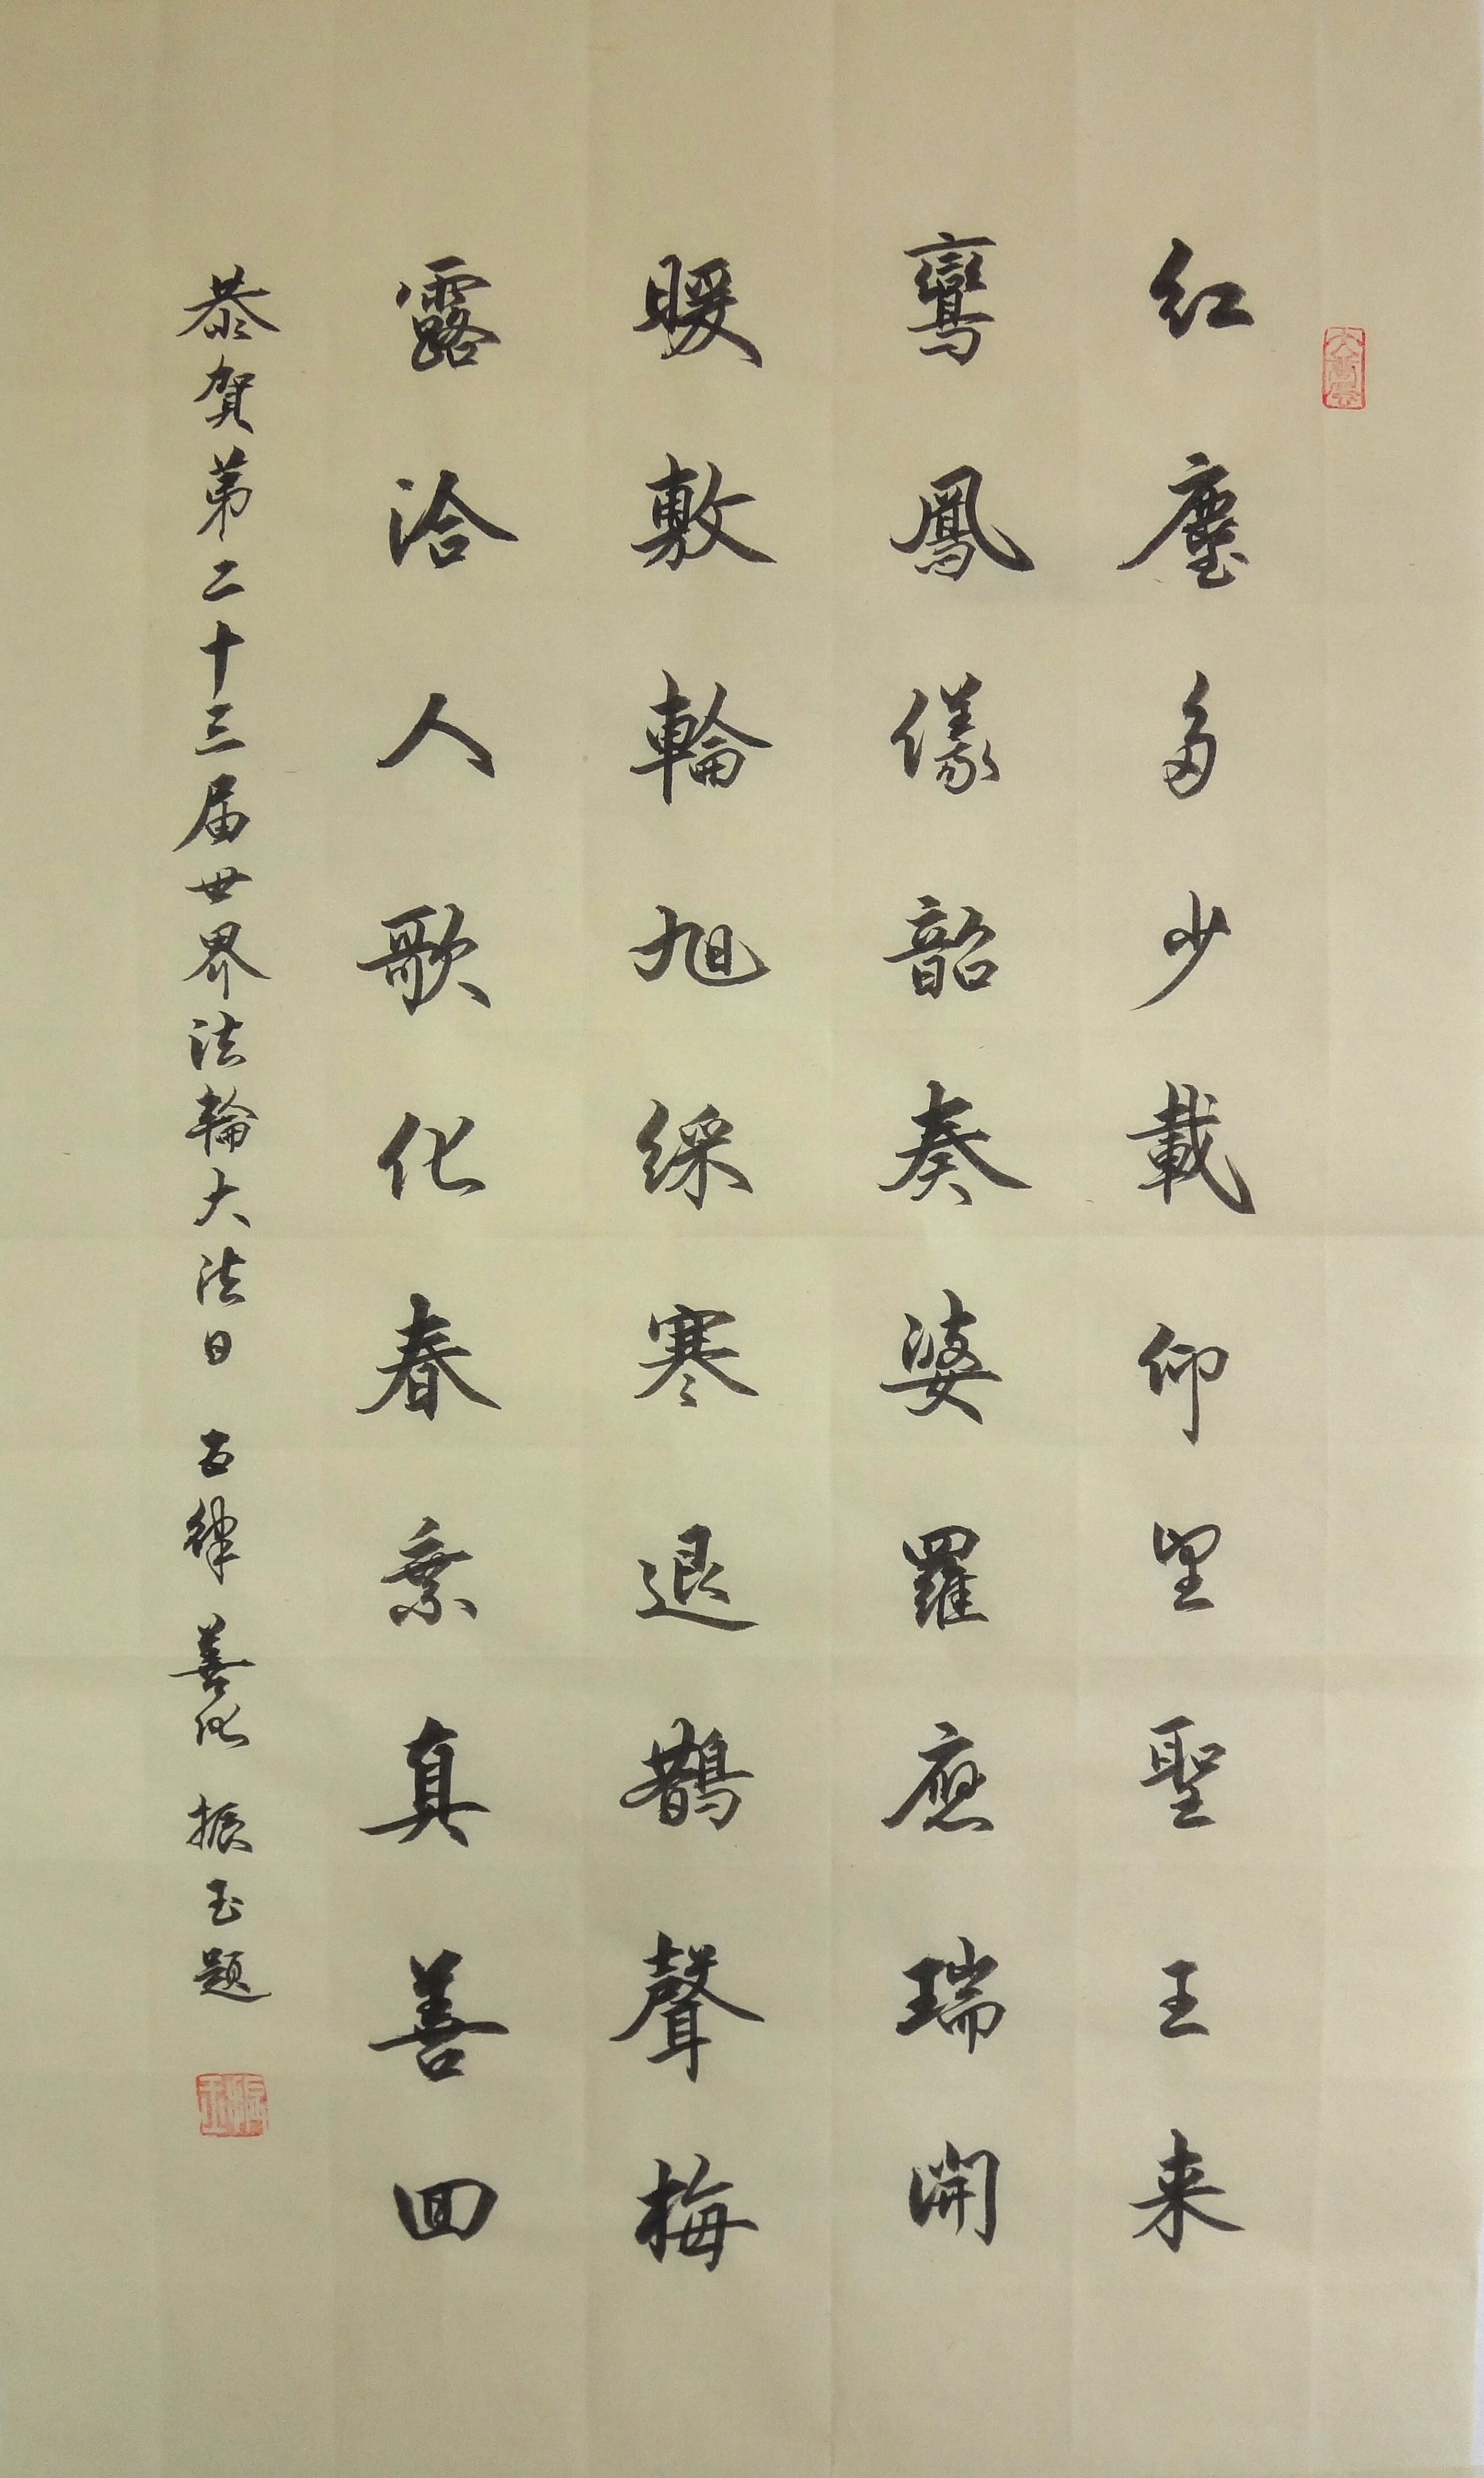 紅塵多少載仰望聖王来
鸞鳳儀韶奏婆羅應瑞開
暖敷輪旭綵寒退鵲聲梅
露洽人歌化春乘真善回
恭賀第二十三届世界法輪大法日 五律 善化 振玉題
振玉